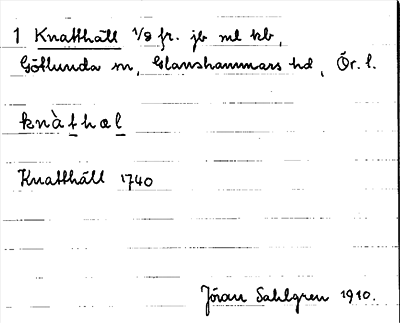 1 Knatthäll 1/8 fr. jb ml kb,
Götlunda sn, Glanshammars hd, Ör. l.
knàthæl
Knatthäll 1740
Jöran Sahlgren 1910.